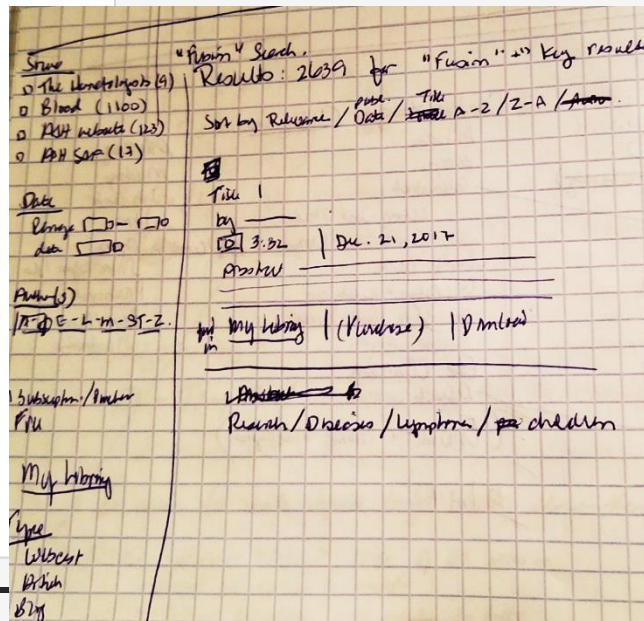 Source
The Hematologists (9)
Blood (1100)
ASH website (123)
ASH SAP (17)
Date
Range –
date
Author(s)
E-L-M-S T-Z
Subscription/
Free
My Library
Type
Webcast
Article
Blog
"Fusion" Search.
Results: 2639 for "Fusion" in key results
Sort by Relevance / publ. Date / Title A-Z / Z-A /
Title 1
by
3.32 | Dec. 21, 2017
Abstract
My Library | (Purchase) | Download
Research / Diseases / Lymphoma / children